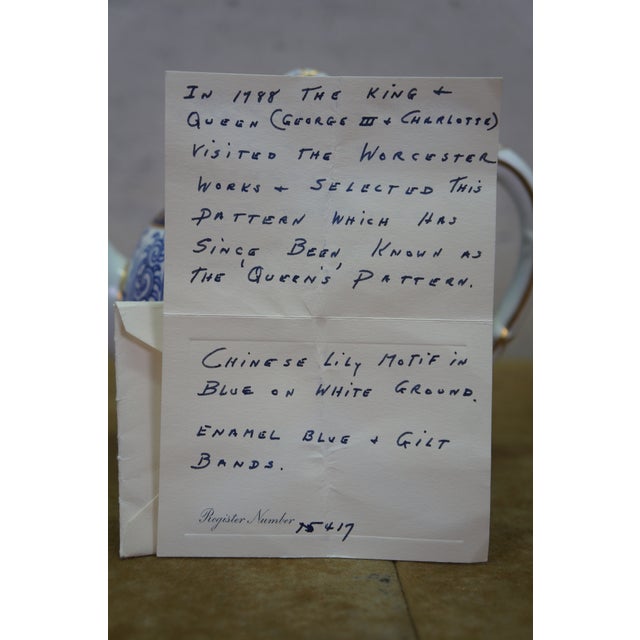 In 1788 The King +
Queen (George III + Charlotte)
Visited the Worcester
Works + Selected This
Pattern Which Has
Since Been Known as
the 'Queen's' Pattern.
Chinese Lily Motif in
Blue on White Ground.
Enamel Blue + Gilt
Bands.
Register Number 15417